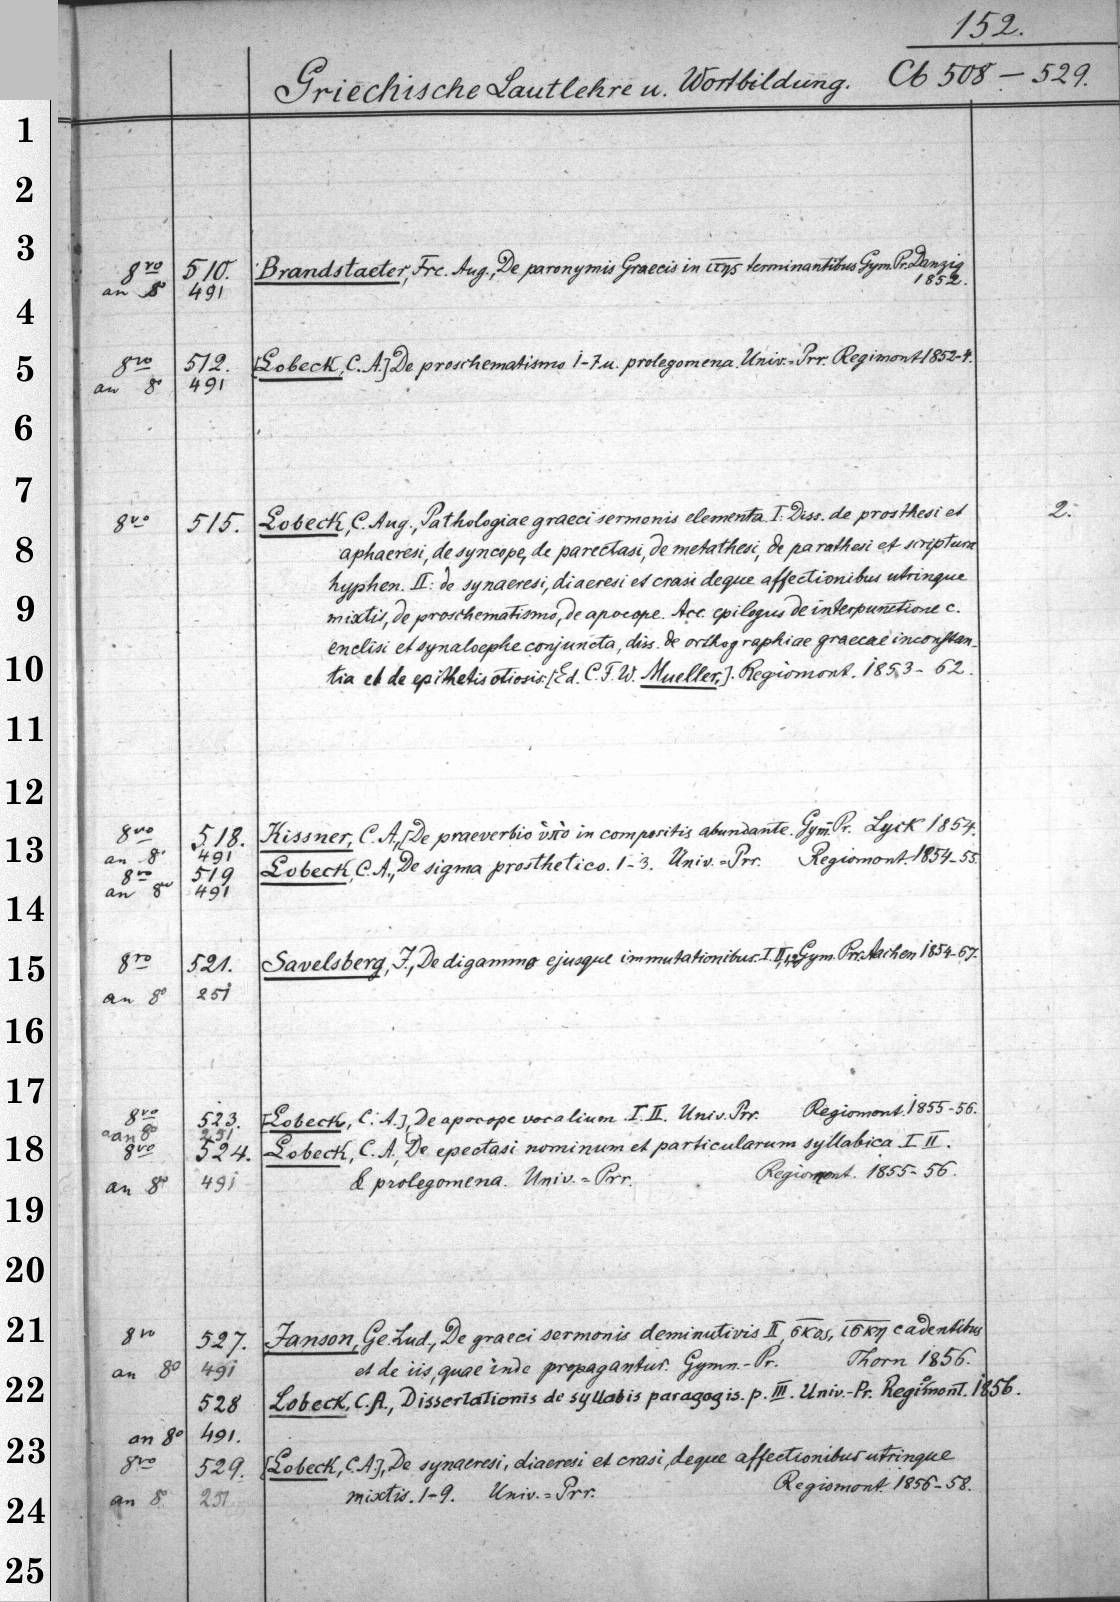 152.
Griechische Lautlehre u. Wortbildung. Cb 508 – 529.
1
2
3
8vo 510. Brandstaeter, Frc. Aug., De paronymis Graecis in ιτης terminantibus Gym. Pr. Danzig
an 8° 491 1852.
4
5
8vo 512. [Lobeck, C. A.] De proschematismo 1-7 u. prolegomena. Univ.=Prr. Regimont. 1852-4.
an 8° 491
6
7
8vo 515. Lobeck, C. Aug., Pathologiae graeci sermonis elementa I: Diss. de prosthesi et 2.
8
aphaeresi, de syncope, de parectasi, de metathesi, de parathesi et scriptura
hyphen. II: de synaeresi, diaeresi et crasi deque affectionibus utrinque
9
mixtis, de proschematismo, de apocope. Acc. epilogus de interpunctione c.
enclisi et synaloephe conjuncta, diss. de orthographiae graecae inconstan-
10
tia et de epithetis otiosis. [Ed. C. F. W. Mueller.]. Regiomont. 1853 – 62.
11
12
8vo 518. Kissner, C. A., [De praeverbio ὑπο in compositis abundante. Gym. Pr. Lyck 1854.
13
an 8° 491
8vo 519 Lobeck, C. A., De sigma prosthetico. 1-3. Univ.=Prr. Regiomont. 1854-55.
an 8° 491
14
15
8vo 521. Savelsberg, J., De digammo ejusque immutationibus. I. II,1,2 Gym. Prr. Aachen 1854-67.
an 8° 251
16
17
8vo 523. [Lobeck, C. A.], De apocope vocalium I. II. Univ. Prr. Regiomont. 1855-56.
an 8° 251
18
8vo 524. Lobeck, C. A., De epectasi nominum et particularum syllabica I II.
an 8° 491 & prolegomena. Univ.=Prr. Regiomont. 1855-56.
19
20
21
8vo 527. Janson, Ge. Lud., De graeci sermonis deminutivis II, σκος, ισκη cadentibus
an 8° 491 et de iis, quae inde propagantur. Gymn.-Pr. Thorn 1856.
22
528 Lobeck, C. A., Dissertationis de syllabis paragogis. p. III. Univ.-Pr. Regiomont. 1856.
an 8° 491.
23
8vo 529. [Lobeck, C. A], De synaeresi, diaeresi et crasi, deque affectionibus utrinque
an 8° 251 mixtis. 1-9. Univ.=Prr. Regiomont. 1856-58.
24
25